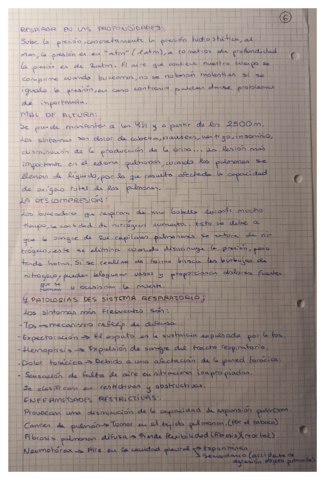 6
RESPIRAR EN LAS PROFUNDIDADES:
Sobre la presión, concretamente la presión hidrostática, al
mar, la presión es en "atm" (1 atm), a 10 metros de profundidad
la presión es de 2 atm. El aire que contiene nuestro cuerpo se
comprime cuando buceamos, no se notarán molestias si se
iguala la presión, en caso contrario pueden darse problemas
de importancia.
MAL DE ALTURA:
Se puede manifestar a las 4h y a partir de los 2500m.
Los síntomas son dolor de cabeza, nauseas, vertigo, insomnio,
disminución de la producción de la orina... La lesión más
importante es el edema pulmonar, cuando los pulmones se
llenan de líquido, por lo que resulta afectada la capacidad
de oxígeno total de los pulmones.
LA DESCOMPRESIÓN:
Los buceadores, que respiran de una botella durante mucho
tiempo, la cantidad de nitrógeno aumenta. Esto se debe a
que la sangre de los capilares pulmonares se satura de ni-
trógeno, este se elimina cuando disminuye la presión, pero
tarda horas. Si se realiza de forma brusca las burbujas de
nitrógeno, pueden bloquear vasos y proporcionar dolores fuertes
que se u ocasionar la muerte.
4. PATOLOGÍAS DEL SISTEMA RESPIRATORIO:
Los síntomas más frecuentes son:
- Tos → mecanismo reflejo de defensa.
- Expectoración → El esputo es la sustancia expulsada por la tos.
- Hemoptisis → Expulsión de sangre del tracto respiratorio.
- Dolor torácico → Debido a una afectación de la pared torácica.
- Sensación de falta de aire en situaciones inapropiadas.
Se clasifican en restrictivas y obstructivas.
ENFERMEDADES RESTRICTIVAS:
Provocan una disminución de la capacidad de expansión pulmonar.
Cancer de pulmón → Tumor en el tejido pulmonar (por el tabaco)
Fibrosis pulmonar difusa → Pierde elasticidad (fibrosis)
Neumotórax → Aire en la cavidad pleural → Espontáneo.
→ Secundario (accidente